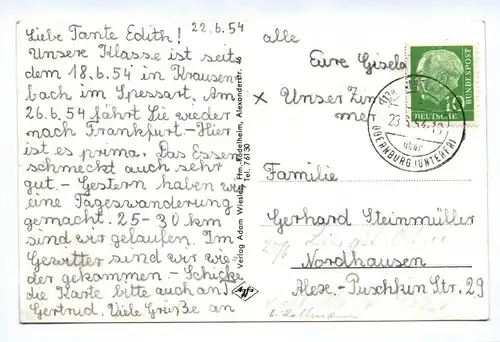 22.6.54
Liebe Tante Edith!
Unsere Klasse ist seit
dem 18.6.54 in Krausen-
bach im Spessart. Am
26.6.54 fährt Sie wieder
nach Frankfurt-Hier
ist es prima. Das Essen
schmeckt auch sehr
gut. - Gestern haben wir
eine Tageswanderung
gemacht. 25-30 km
sind wir gelaufen. Im
Gewitter sind wir wie-
der gekommen. - Schicke
die Karte bitte auch an
Gertrud. Viele Grüße an
alle
Eure Gisela
x Unser Zim
mer
Verlag Adam Wiesler, Ffm.-Rödelheim, Alexanderstr. 46
Tel. 76130
DEUTSCHE
BUNDESPOST
10
OBERNBURG (UNTERFR)
über
Familie
Gerhard Steinmüller
Nordhausen
Alex.-Puschkin Str. 29